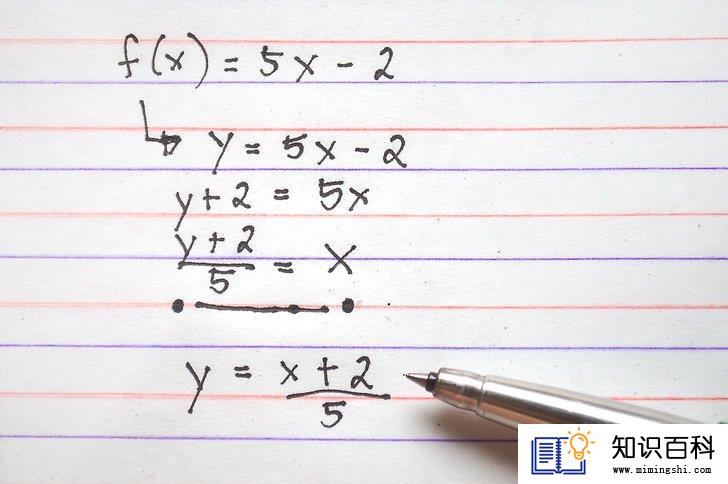 f(x) = 5x - 2
y = 5x - 2
y + 2 = 5x
y + 2
5
= x
y = x + 2
5
知识百科
www.mimingshi.com